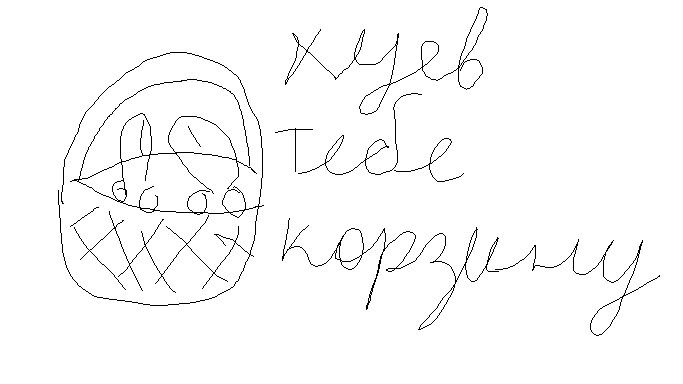 хуев
тебе
корзину